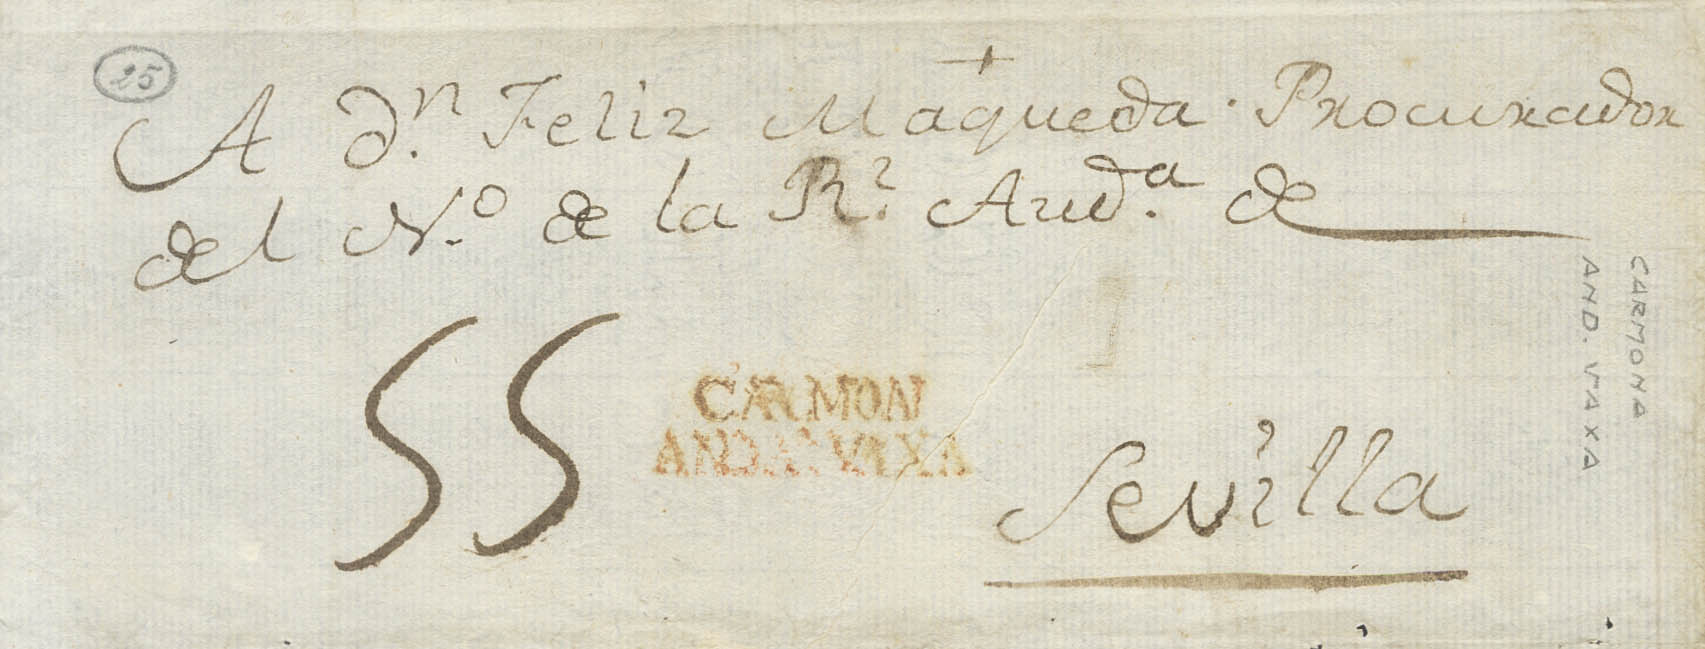 25
A D.n Feliz Maqueda. Procurador
del N.o de la R.l Aud.a de
SS
CARMON
ANDA. VAXA
Sevilla
CARMONA
AND. VAXA